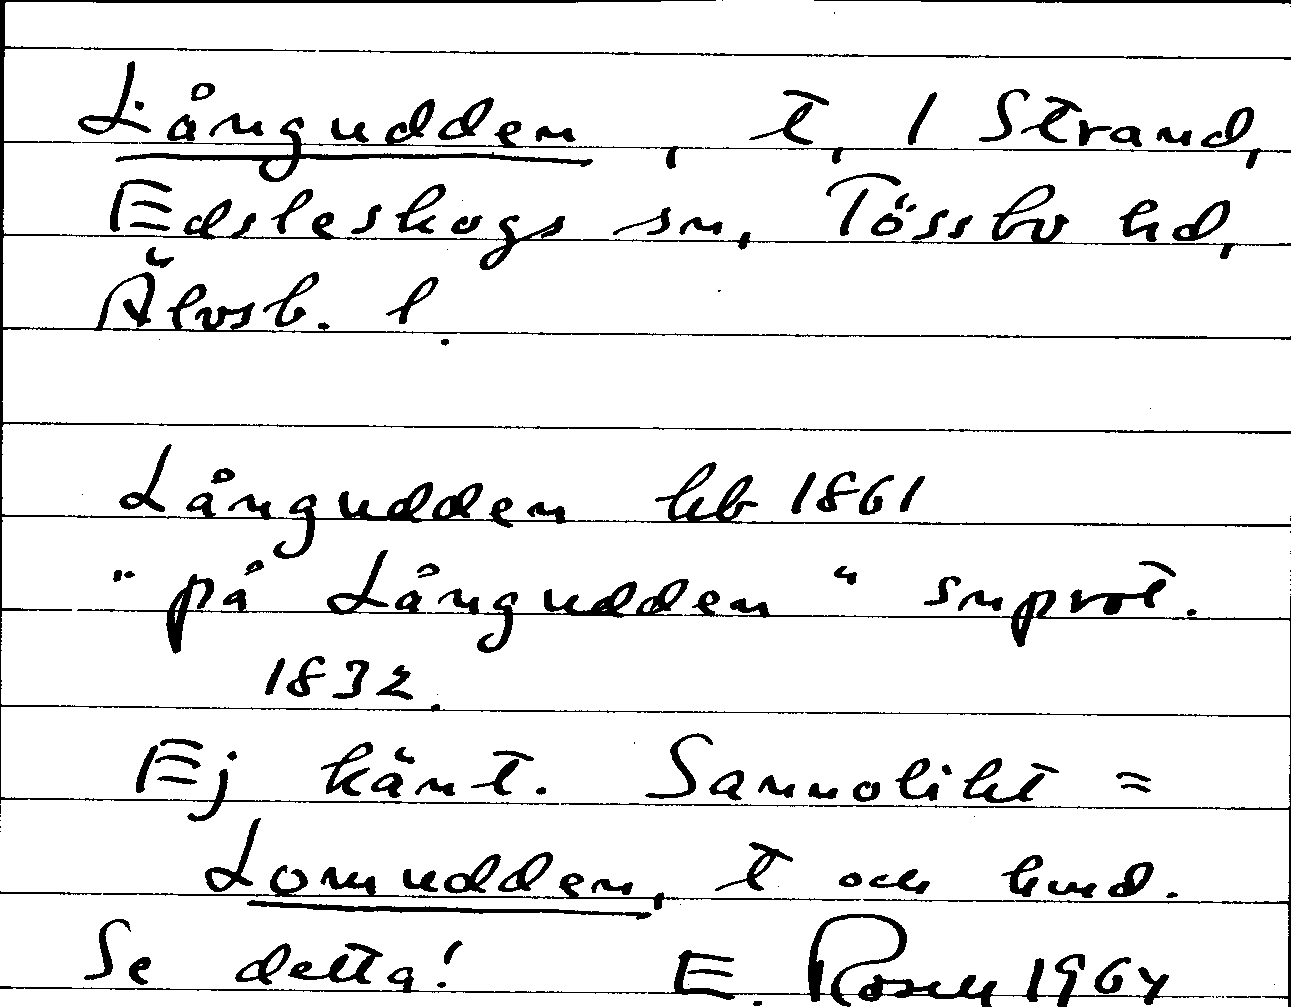 Långudden, t, 1 Strand,
Edsleskogs sn, Tössbo hd,
Älvsb. l.
Långudden hb 1861
"på Långudden" snprot.
1832.
Ej känt. Sannolikt =
Lomudden, t och hmd.
Se detta! E. Rosell 1964